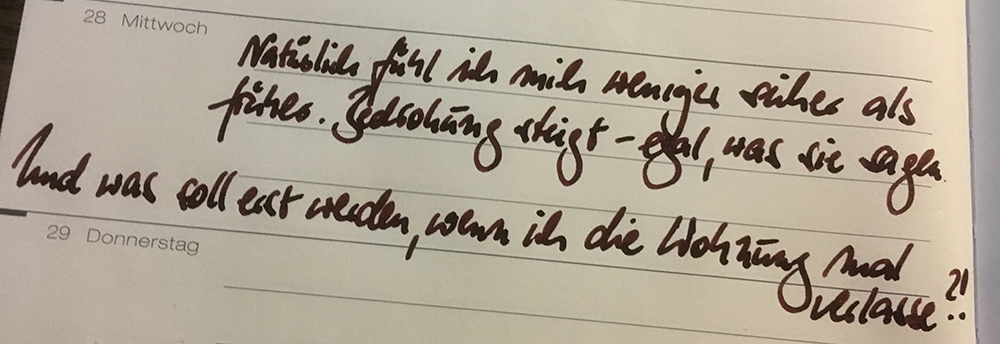 28 Mittwoch
Natürlich fühl ich mich weniger sicher als
früher. Bedrohung steigt – egal, was sie sagen.
Und was soll erst werden, wenn ich die Wohnung mal
verlasse?!
29 Donnerstag